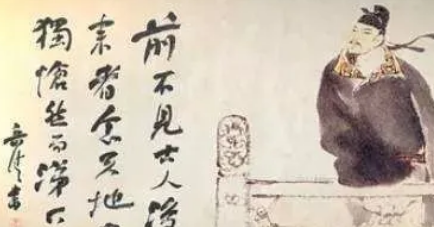 前不見古人後
來者念天地
獨愴然而涕下